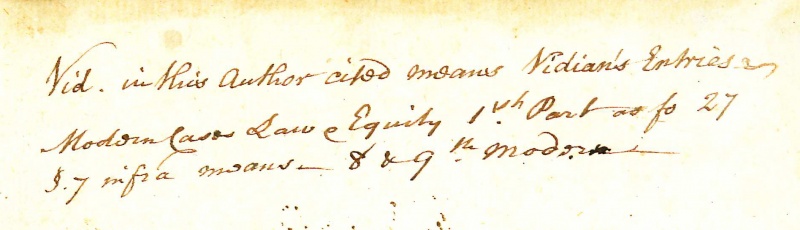 Vid. in this Author cited means Vidian's Entries
Modern Cases Law & Equity 1st Part as fo 27
§. 7 infra means 8 & 9th Modern